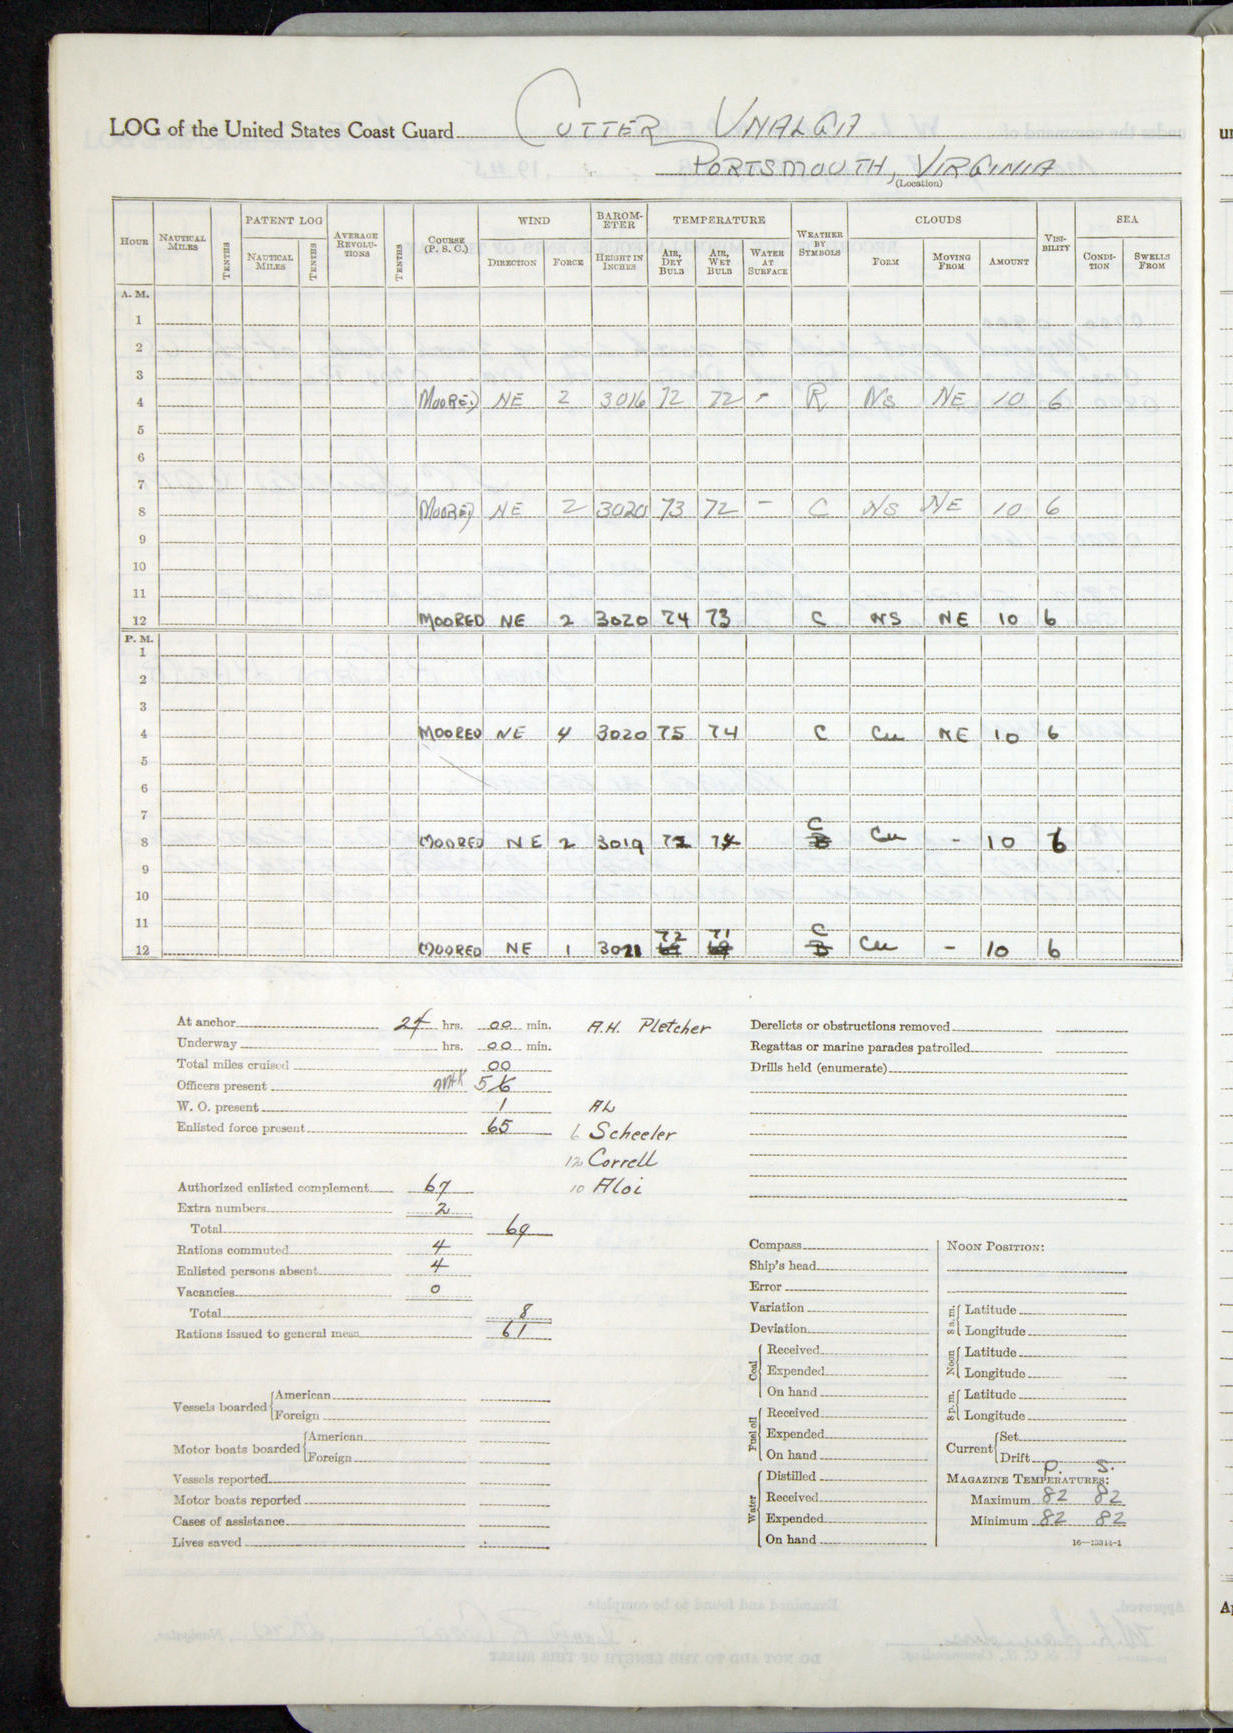 LOG of the United States Coast Guard CUTTER UNALGA
PORTSMOUTH, VIRGINIA
(Location)
HOUR NAUTICAL MILES TENTHS PATENT LOG NAUTICAL MILES TENTHS AVERAGE REVOLU-TIONS TENTHS COURSE (P. S. C.) WIND DIRECTION FORCE BAROM-ETER HEIGHT IN INCHES TEMPERATURE AIR, DRY BULB AIR, WET BULB WATER AT SURFACE WEATHER BY SYMBOLS CLOUDS FORM MOVING FROM AMOUNT VISI-BILITY SEA CONDI-TION SWELLS FROM
A. M.
1
2
3
4 MOORED NE 2 3016 72 72 - R NS NE 10 6
5
6
7
8 MOORED NE 2 3020 73 72 - C NS NE 10 6
9
10
11
12 MOORED NE 2 3020 74 73 C NS NE 10 6
P. M.
1
2
3
4 MOORED NE 4 3020 75 74 C Cu NE 10 6
5
6
7
8 MOORED NE 2 3019 C Cu - 10 6
9
10
11
12 MOORED NE 1 3021 72 71 C Cu - 10 6
At anchor 24 hrs. 00 min. A.H. Pletcher
Underway hrs. 00 min.
Total miles cruised 00
Officers present 5 6
W. O. present 1 AL
Enlisted force present 65 6 Scheeler
12 Correll
Authorized enlisted complement 67 10 Aloi
Extra numbers 2
Total 69
Rations commuted 4
Enlisted persons absent 4
Vacancies 0
Total 8
Rations issued to general mess 61
Vessels boarded American
Foreign
Motor boats boarded American
Foreign
Vessels reported
Motor boats reported
Cases of assistance
Lives saved
Derelicts or obstructions removed
Regattas or marine parades patrolled
Drills held (enumerate)
Compass
Ship's head
Error
Variation
Deviation
Coal Received
Expended
On hand
Fuel oil Received
Expended
On hand
Water Distilled
Received
Expended
On hand
NOON POSITION:
8 a.m. Latitude
Longitude
Noon Latitude
Longitude
8 p.m. Latitude
Longitude
Current Set
Drift
P. S.
MAGAZINE TEMPERATURES:
Maximum 82 82
Minimum 82 82
16—13314-1